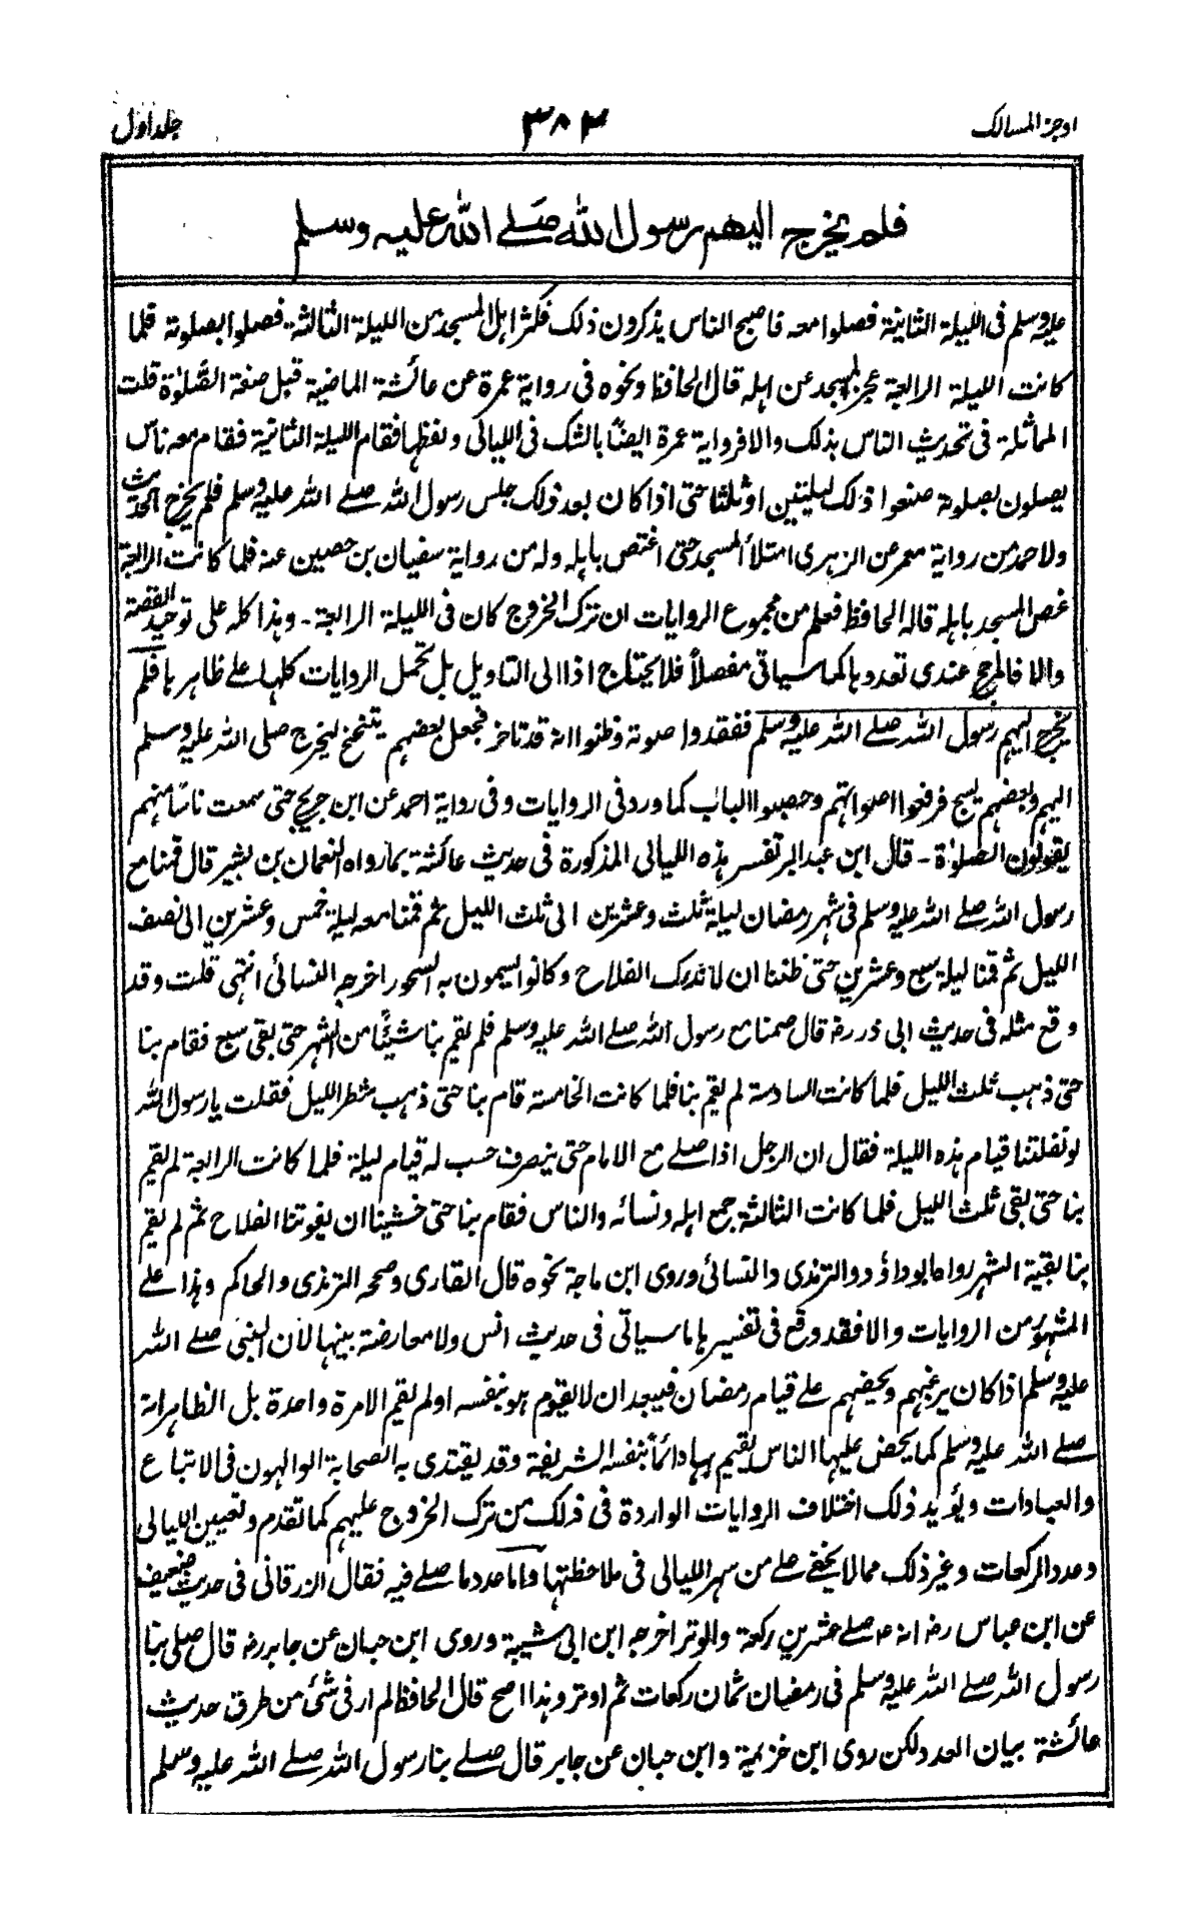 اوجز المسالك
۳۸۲
جلد اول
فلم يخرج اليهم رسول الله صلے الله عليه وسلم
عليه وسلم فى الليلة الثانية فصلوا معه فاصبح الناس يذكرون ذلك فكثر اهل المسجد من الليلة الثالثة فصلوا بصلوته فلما
كانت الليلة الرابعة عجز المسجد عن اهله قال الحافظ ونحوه فى رواية عمرة عن عائشة الماضية قبل صفة الصلوٰة قلت
المماثلة فى تحديث الناس بذلك والا فرواية عمرة ايضًا بالشك فى الليالى ولفظها فقام الليلة الثانية فقام معه ناس
يصلون بصلوته صنعوا ذلك ليلتين او ثلثا حتى اذا كان بعد ذلك جلس رسول الله صلے الله عليه وسلم فلم يخرج الحديث
ولاحمد من رواية معمر عن الزهرى امتلأ المسجد حتى اغتص باهله وله من رواية سفيان بن حصين عنه فلما كانت الرابعة
غص المسجد باهله قاله الحافظ فعلم من مجموع الروايات ان ترك الخروج كان فى الليلة الرابعة - وهذا كله على توحيد القصة
والا فالمرجح عندى تعددها كما سياتى مفصلاً فلا يحتاج اذا الى التاويل بل تحمل الروايات كلها على ظاهرها فلم
يخرج اليهم رسول الله صلے الله عليه وسلم ففقدوا صوته وظنوا انه قد تاخر فجعل بعضهم يتنحنح ليخرج صلى الله عليه وسلم
اليهم وبعضهم يسبح فرفعوا اصواتهم وحصبوا الباب كما ورد فى الروايات وفى رواية احمد عن ابن جريج حتى سمعت ناسًا منهم
يقولون الصلوٰة - قال ابن عبد البر تفسر هذه الليالى المذكورة فى حديث عائشة بما رواه النعمان بن بشير قال قمنا مع
رسول الله صلے الله عليه وسلم فى شهر رمضان ليلة ثلث وعشرين الى ثلث الليل ثم قمنا معه ليلة خمس وعشرين الى نصف
الليل ثم قمنا ليلة سبع وعشرين حتى ظننا ان لا ندرك الفلاح وكانوا يسمون به السحور اخرجه النسائى انتهى قلت وقد
وقع مثله فى حديث ابى ذر رضه قال صمنا مع رسول الله صلے الله عليه وسلم فلم يقم بنا شيئًا من الشهر حتى بقى سبع فقام بنا
حتى ذهب ثلث الليل فلما كانت السادسة لم يقم بنا فلما كانت الخامسة قام بنا حتى ذهب شطر الليل فقلت يا رسول الله
لو نفلتنا قيام هذه الليلة فقال ان الرجل اذا صلے مع الامام حتى ينصرف حسب له قيام ليلة فلما كانت الرابعة لم يقم
بنا حتى بقى ثلث الليل فلما كانت الثالثة جمع اهله ونسائه والناس فقام بنا حتى خشينا ان يفوتنا الفلاح ثم لم يقم
بنا بقية الشهر رواه ابوداؤد والترمذى والنسائى وروى ابن ماجة نحوه قال القارى وصححه الترمذى والحاكم وهذا على
المشهور من الروايات والا فقد وقع فى تفسيرها ما سياتى فى حديث انس ولا معارضة بينها لان النبى صلے الله
عليه وسلم اذا كان يرغبهم ويحضهم علے قيام رمضان فيبعد ان لا يقوم هو بنفسه او لم يقم الا مرة واحدة بل الظاهر انه
صلے الله عليه وسلم كما يحض عليها الناس يقيم بها دائماً بنفسه الشريفة وقد يقتدى به الصحابة الوالهون فى الاتباع
والعبادات ويؤيد ذلك اختلاف الروايات الواردة فى ذلك من ترك الخروج عليهم كما تقدم وتعيين الليالى
وعدد الركعات وغير ذلك مما لا يخفى على من سهر الليالى فى ملاحظتها واما عدد ما صلے فيه فقال الزرقانى فى حديث ضعيف
عن ابن عباس رضه انه صلے عشرين ركعة والوتر اخرجه ابن ابى شيبة وروى ابن حبان عن جابر رضه قال صلى بنا
رسول الله صلے الله عليه وسلم فى رمضان ثمان ركعات ثم اوتر وهذا اصح قال الحافظ لم ار فى شئ من طرق حديث
عائشة بيان العدد لكن روى ابن خزيمة وابن حبان عن جابر قال صلے بنا رسول الله صلے الله عليه وسلم